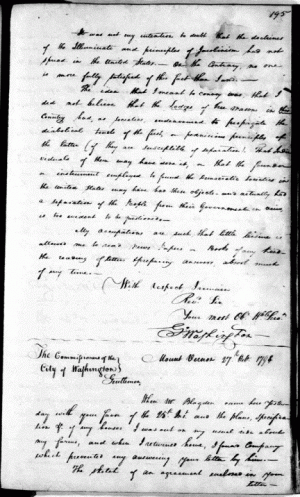 195
It was not my intention to doubt that, the doctrines
of the Illuminati and principles of Jacobinism had not
spread in the United States. On the contrary, no one
is more fully satisfied of this fact than I am.
The idea that I meant to convey was, that I
did not believe that the Lodges of Free Masons in this
Country had, as Societies, endeavoured to propagate the
diabolical tenets of the first, or pernicious principles of
the latter (if they are susceptible of separation). That Indi
viduals of them may have done it, or that the founder
or instrument employed to found the Democratic Societies in
the United States may have had these objects, and actually had
a separation of the People from their Government in view,
is too evident to be questioned.
My occupations are such that little leisure is
allowed me to read News Papers or Books of any kind;
the reading of letters & preparing answers, absorb much
of my time.
With respect I remain
Revd Sir
Your most Obt Hble Servt
Go Washington
The Commissioners of the
City of Washington
Gentlemen,
Mount Vernon 27th Octr
When Mr Blagden came here yester
day with your favor of the 25th Inst and the plans, specifica
tion &c of my houses I was out on my usual ride about
my farms, and when I returned home, I found Company
which prevented my answering your letter by him.
The sketch of an agreement enclosed in your
letter